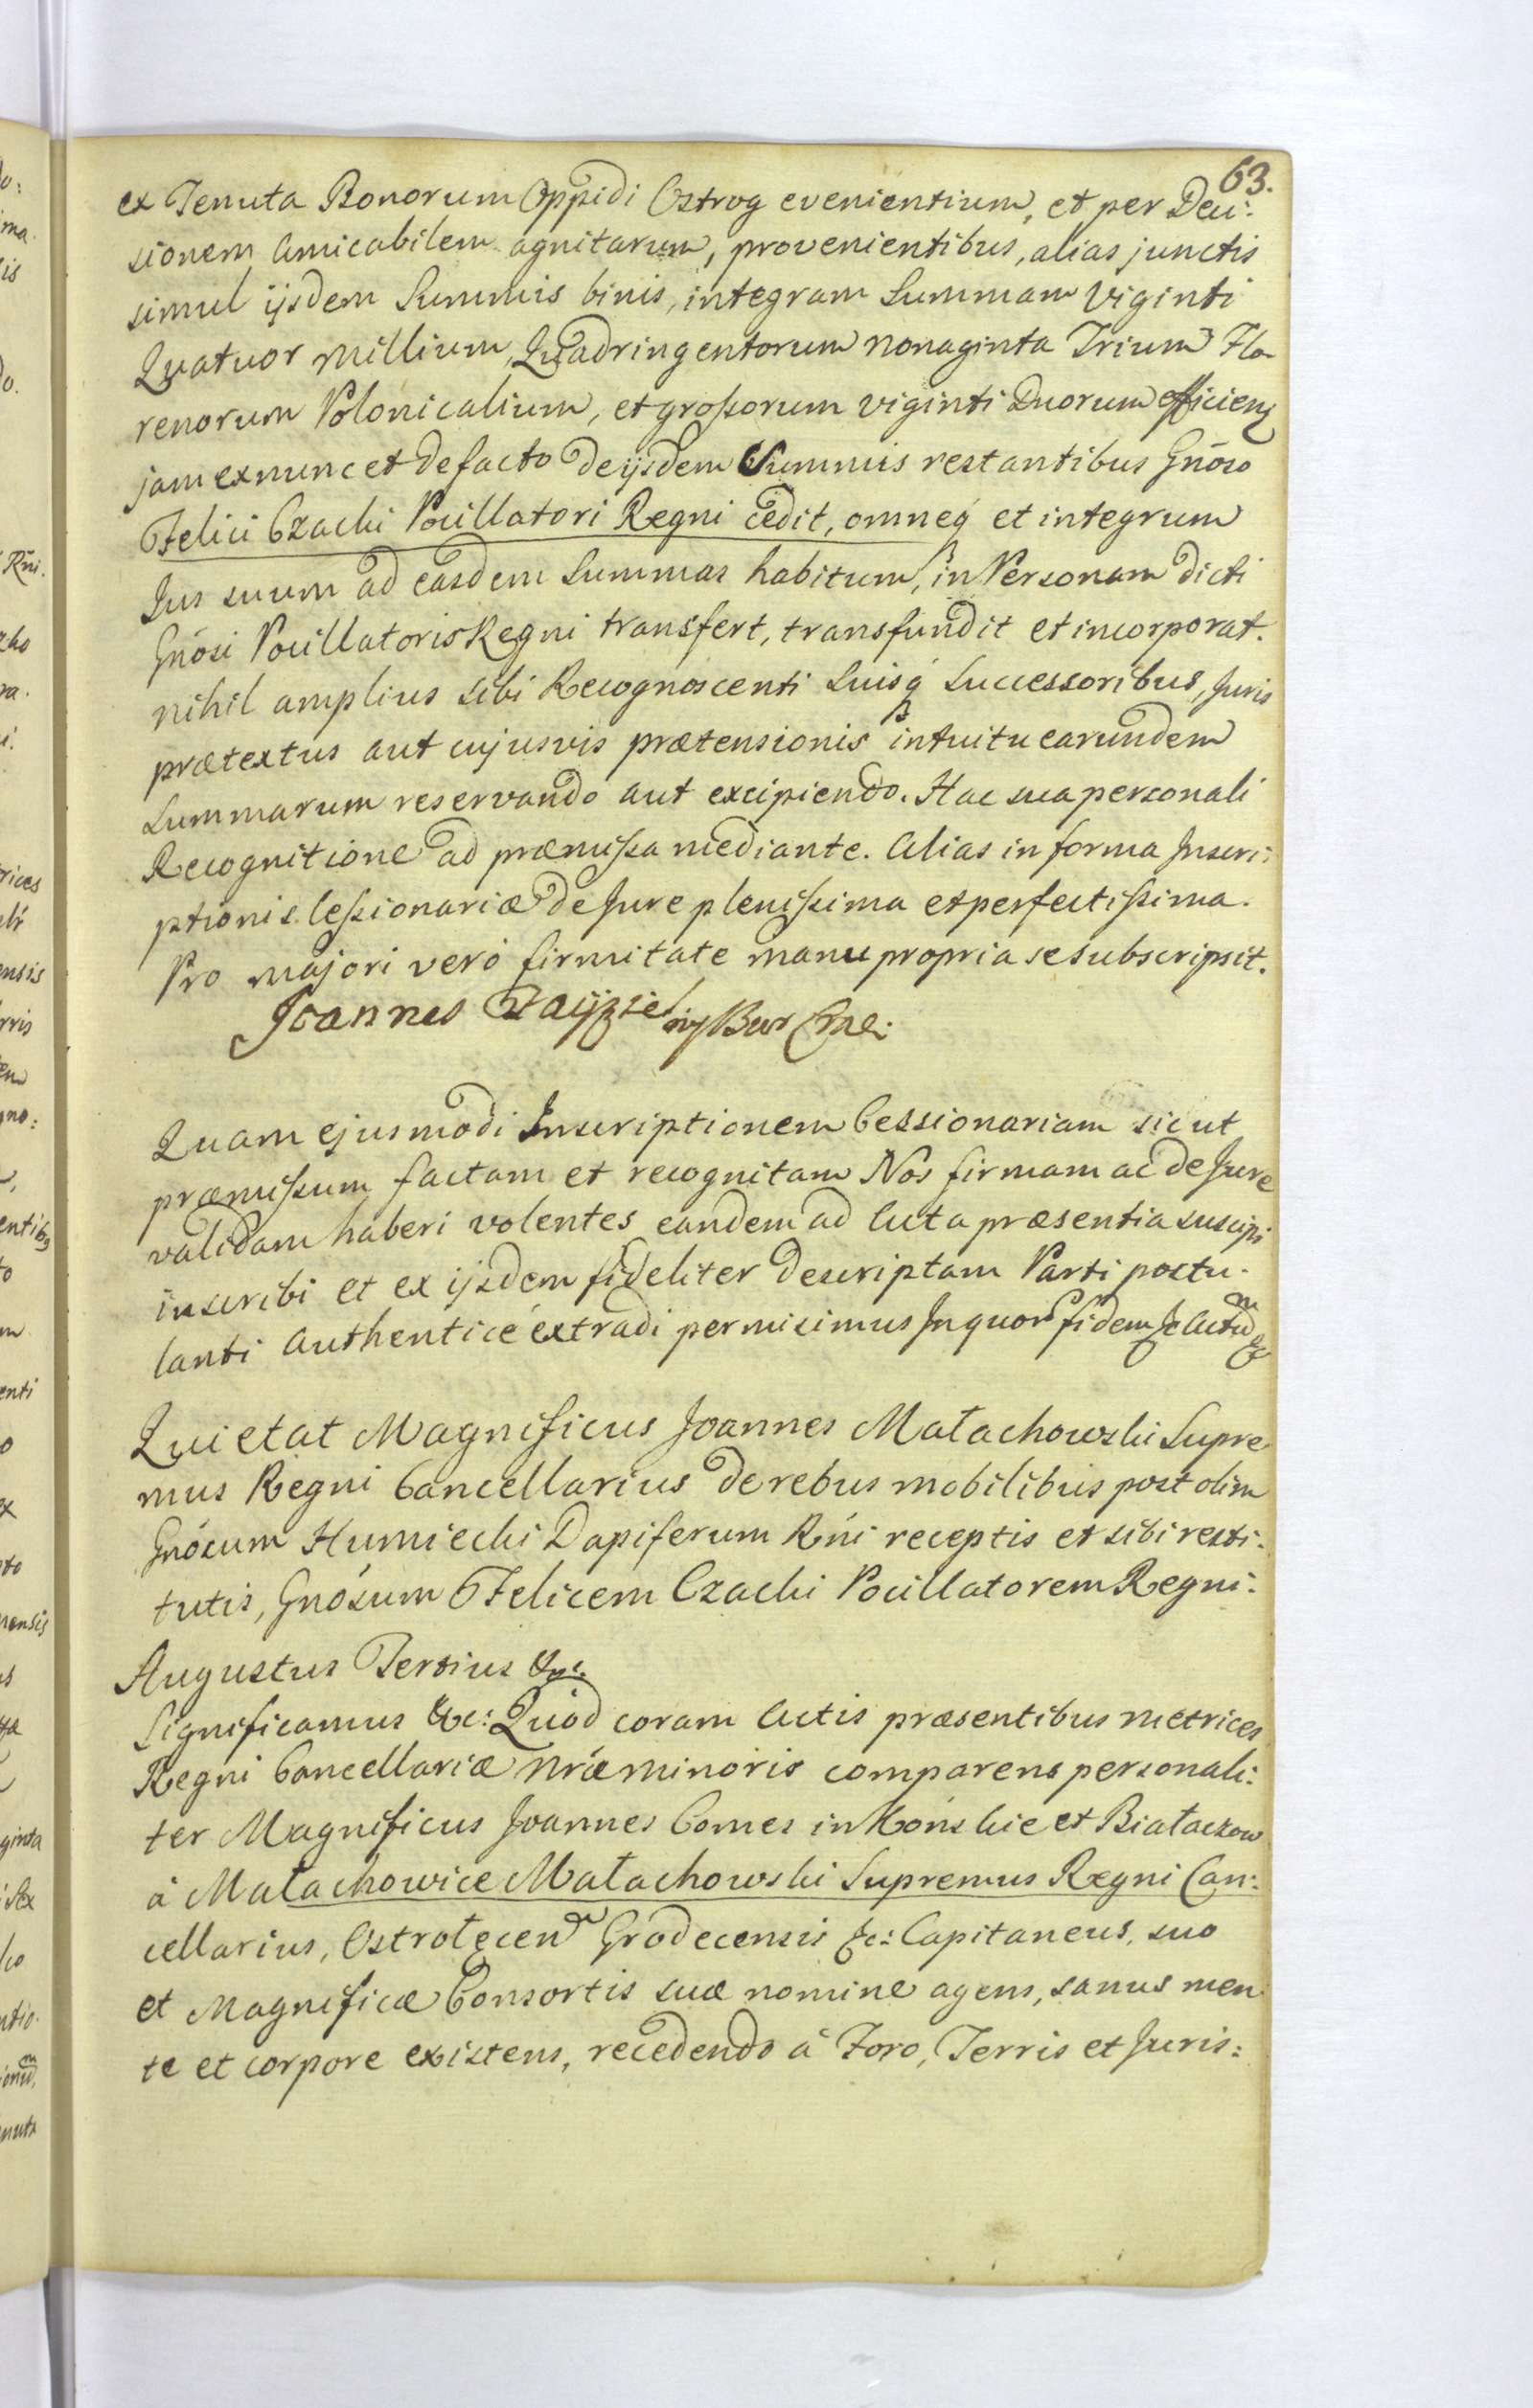 63.
ex Tenuta Bonorum Oppidi Ostrog evenientium, et per Deci:
sionem Amicabilem agnitarum, provenientibus, alias junctis
simul ijsdem Summis binis, integram Summam Viginti
Quatuor Millium, Quadringentorum nonaginta Trium Flo
renorum Polonicalium, et großorum viginti Duorum efficien
jam exnunc et de facto de ijsdem Summis restantibus Gnõso
Felici Czacki Pocillatori Regni cedit, omneq́ et integrum
Jus suum ad easdem Summas habitum, in Personam dicti
Gnósi Pocillatoris Regni transfert, transfundit et incorporat.
nihil amplius sibi Recognoscenti Suisq́ Successoribus, Juris
prætextus aut cujusvis prætensionis intuitu earundem
Summarum reservando aut excipiendo. Hac sua personali
Recognitione ad præmißa mediante. Alias in forma Inscri:
ptionis Ceßionariæ de Jure pleníßima et perfectißima.
Pro majori veró firmitate manu propria se subscripsit.
Joannes
Quam ejusmodi Inscriptionem Cessionariam sic ut
præmißum factam et recognitam Nos firmam ac de Jure
validam haberi volentes eandem ad Acta præsentia suscipi
inscribi et ex ijsdem fideliter descriptam Parti postu-
lanti Authenticé extradi permisimus In quor fidem &c Actũ
Quietat Magnificus Joannes Małachowski Supre
mus Regni Cancellarius de rebus mobilibus post olim
Gnósum Humiecki Dapiferum Rńi receptis et sibi resti:
tutis, Gnósum Felicem Czacki Pocillatorem Regni:
Augustus Tertius &c.
Significamus &c: Quod coram Actis præsentibus Metrices
Regni Cancellariæ Nrǽ Minoris comparens personali:
ter Magnificus Joannes Comes in Końskie et Białaczow
á Małachowice Małachowski Supremus Regni Can:
cellarius, Ostrołęcen Grodecensis &c: Capitaneus, suo
et Magnificæ Consortis suæ nomine agens, sanus men
te et corpore existens, recedendo á Foro, Terris et Juris: